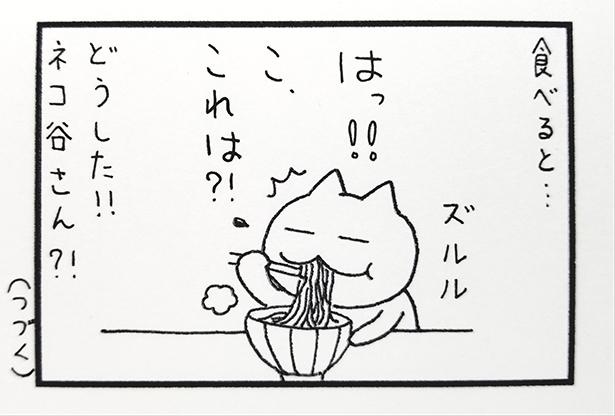 食べると…
ズルル
はっ!!
こ、
これは?!
どうした!!
ネコ谷さん?!
(つづく)